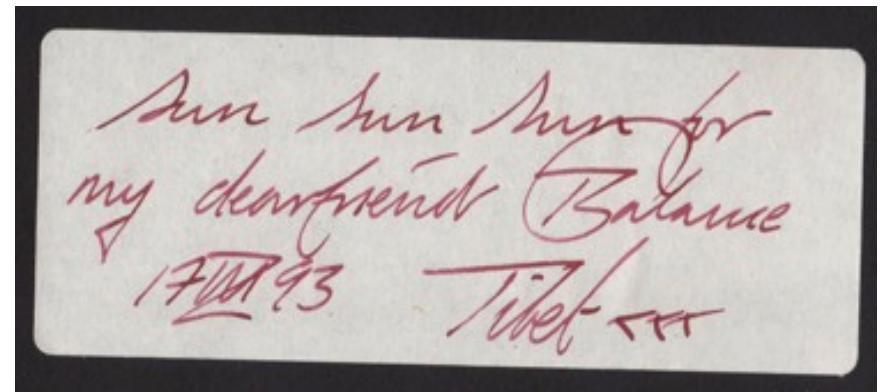 Sun Sun Sun for
my dear friend Balance
17 VIII 93 Tibet xxx